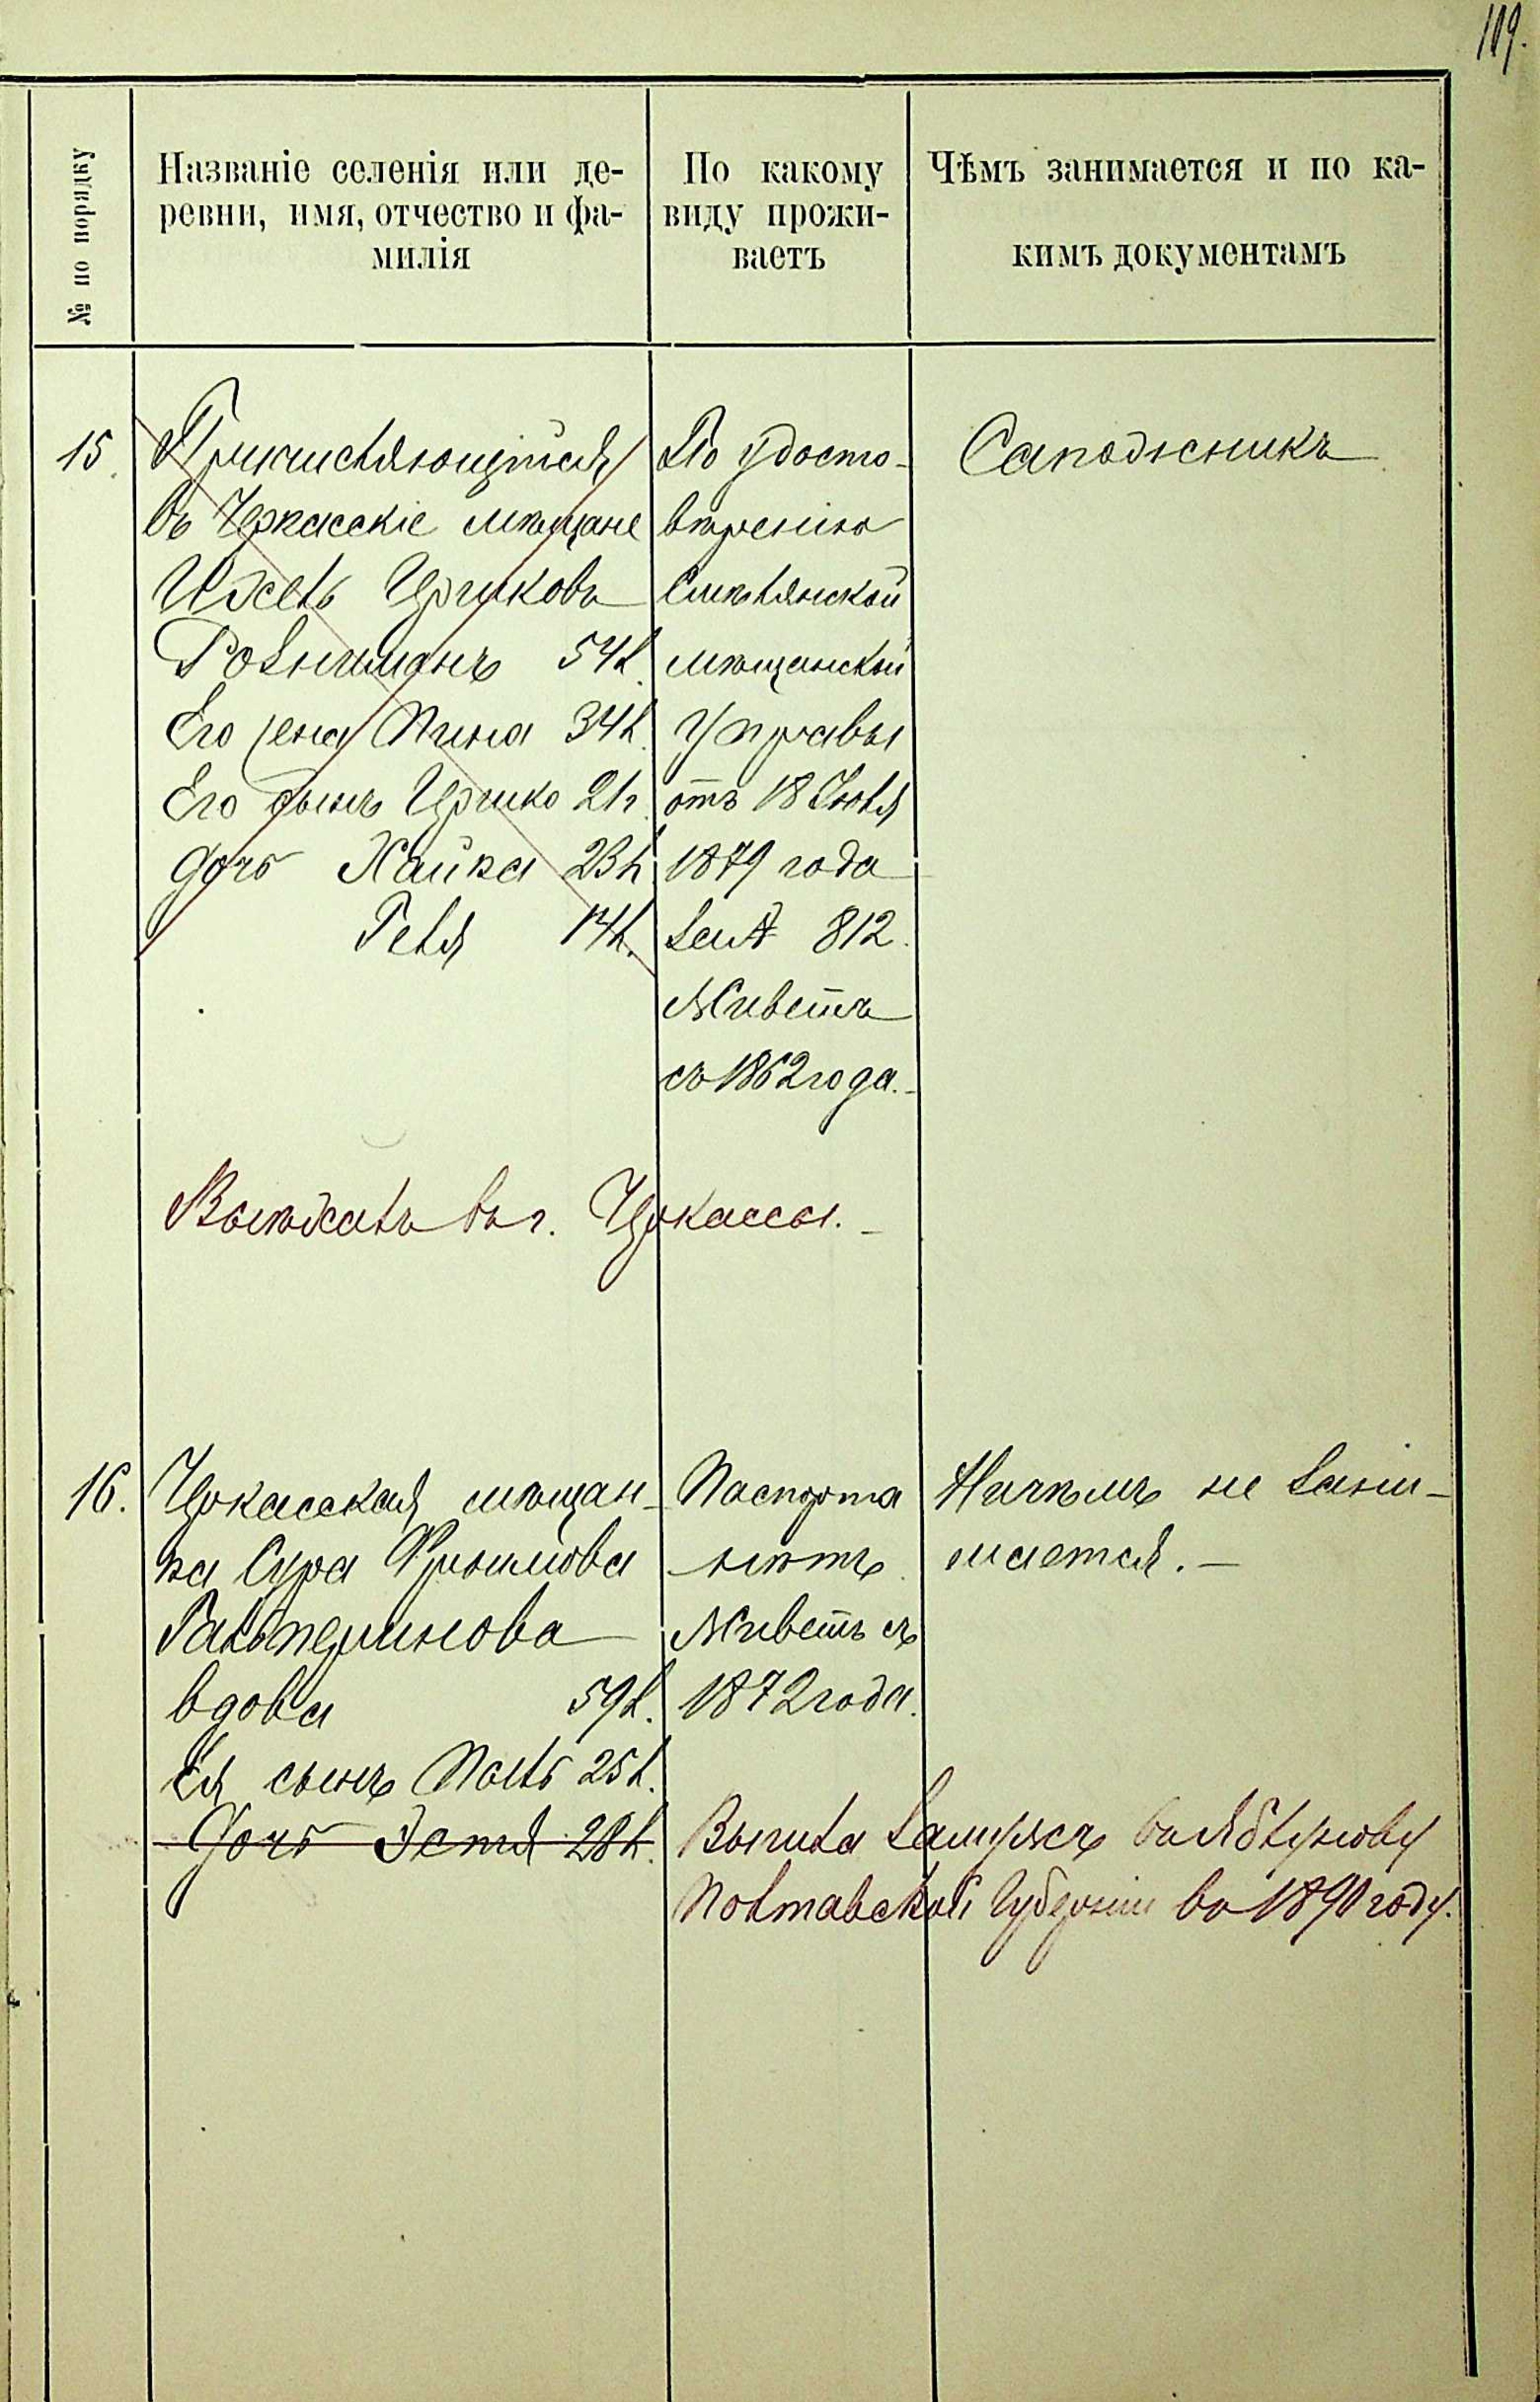 109.
№ по порядку
Названіе селенія или де-
ревни, имя, отчество и фа-
милія
По какому
виду прожи-
ваетъ
Чѣмъ занимается и по ка-
кимъ документамъ
15.
Причисляющійся
въ Черкасскіе мѣщане
Ицковъ
54 л.
Его жена 34 л.
Его сынъ Ицко 21 г.
дочь Хайка 23 л.
Геля 14 л.
По удосто-
вѣренію
Смѣлянской
мѣщанской
Управы
отъ 18 Іюля
1879 года
за № 812.
Живетъ
съ 1862 года.-
Сапожникъ
Выѣхалъ въ г. Черкассы.-
16.
Черкасская мѣщан-
ка Сура
Гальперинова
вдова 59 л.
Ея сынъ 25 л.
Дочь Эстя 28 л.
Паспорта
нѣтъ.
Живетъ съ
1872 года.
Ничѣмъ не зани-
мается.-
Вышла замужъ въ Яблунову
Полтавской Губерніи въ 1890 году.